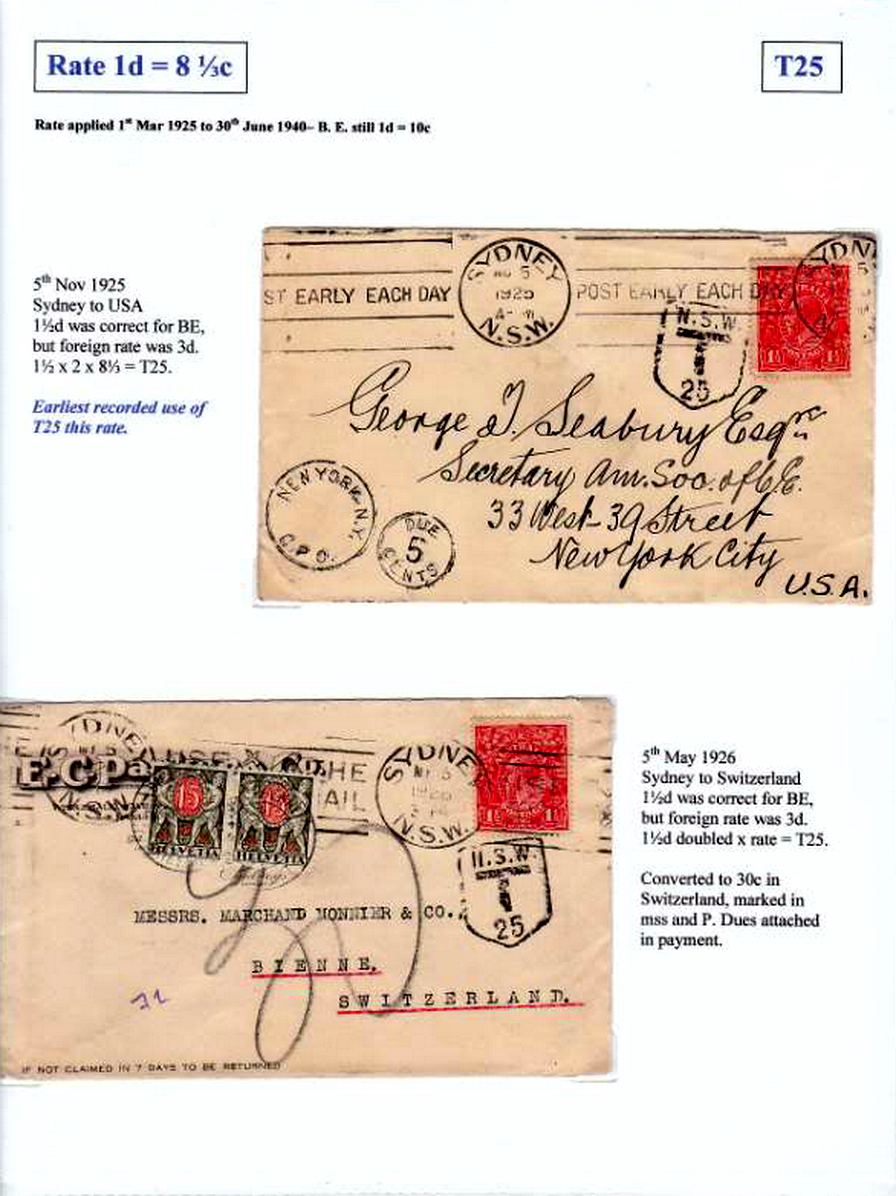 Rate 1d = 8 ⅓c
T25
Rate applied 1st Mar 1925 to 30th June 1940– B. E. still 1d = 10c
5th Nov 1925
Sydney to USA
1½d was correct for BE,
but foreign rate was 3d.
1½ x 2 x 8⅓ = T25.
Earliest recorded use of
T25 this rate.
SYDNEY
5
1925
N.S.W.
ST EARLY EACH DAY
POST EARLY EACH DAY
SYDN
N.S.W.
T
25
1½ 1½
George T. Seabury Esqre
Secretary Am. Soc. of C.E.
33 West 39 Street
New York City
U.S.A.
NEW YORK N.Y.
G.P.O.
DUE
5
CENTS
5th May 1926
Sydney to Switzerland
1½d was correct for BE,
but foreign rate was 3d.
1½d doubled x rate = T25.
Converted to 30c in
Switzerland, marked in
mss and P. Dues attached
in payment.
SYDNEY
N.S.W.
E.C.Pa
THE
AIL
SYDNEY
5
N.S.W.
15
HELVETIA
15
HELVETIA
N.S.W.
T
25
MESSRS. MARCHAND MONNIER & CO.
BIENNE.
SWITZERLAND.
30
IF NOT CLAIMED IN 7 DAYS TO BE RETURNED